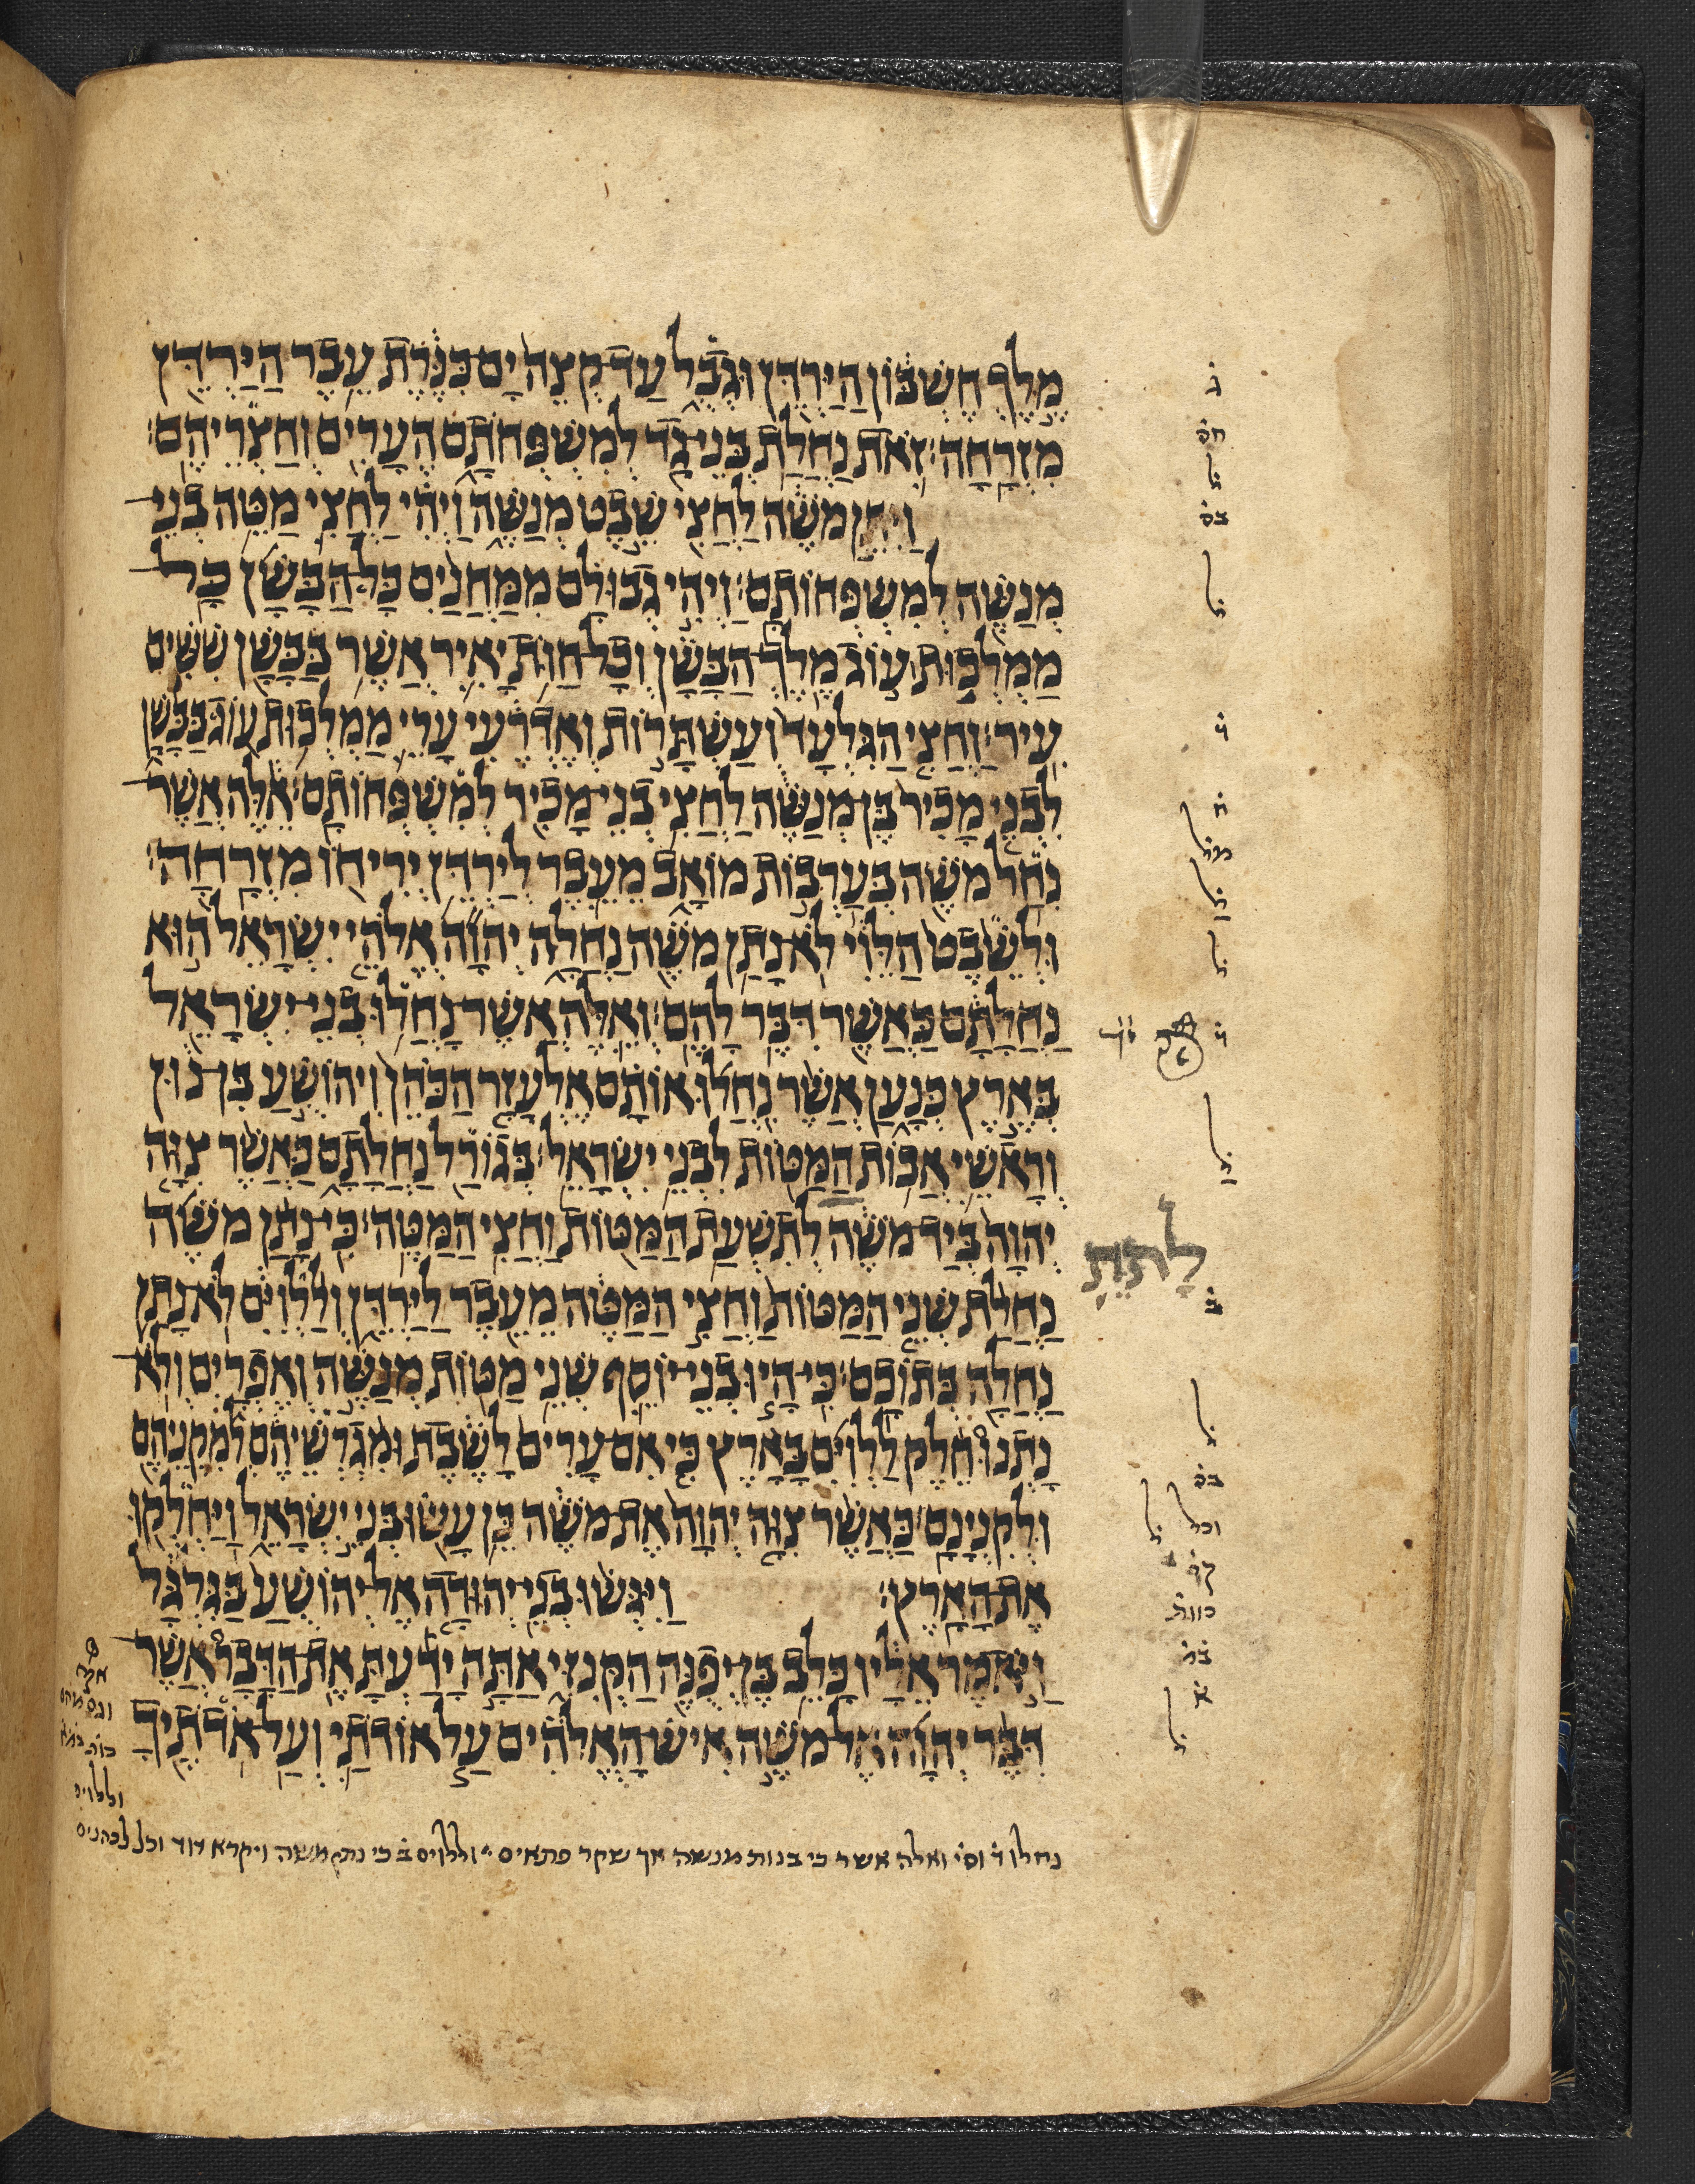 מֶלֶךְ חֶשְׁבּוֹן הַיַּרְדֵּן וּגְבֻל עַד־קְצֵה יָם־כִּנֶּרֶת עֵבֶר הַיַּרְדֵּן
מִזְרָחָה׃ זֹאת נַחֲלַת בְּנֵי־גָד לְמִשְׁפְּחֹתָם הֶעָרִים וְחַצְרֵיהֶם׃
וַיִּתֵּן מֹשֶׁה לַחֲצִי שֵׁבֶט מְנַשֶּׁה וַיְהִי לַחֲצִי מַטֵּה בְנֵי
מְנַשֶּׁה לְמִשְׁפְּחוֹתָם׃ וַיְהִי גְבוּלָם מִמַּחֲנַיִם כָּל־הַבָּשָׁן כָּל
מַמְלְכוּת עוֹג מֶלֶךְ־הַבָּשָׁן וְכָל־חַוֹּת יָאִיר אֲשֶׁר בַּבָּשָׁן שִׁשִּׁים
עִיר׃ וַחֲצִי הַגִּלְעָד וְעַשְׁתָּרוֹת וְאֶדְרֶעִי עָרֵי מַמְלְכוּת עוֹג בַּבָּשָׁן
לִבְנֵי מָכִיר בֶּן־מְנַשֶּׁה לַחֲצִי בְנֵי־מָכִיר לְמִשְׁפְּחוֹתָם׃ אֵלֶּה אֲשֶׁר
נִחַל מֹשֶׁה בְּעַרְבוֹת מוֹאָב מֵעֵבֶר לְיַרְדֵּן יְרִיחוֹ מִזְרָחָה׃
וּלְשֵׁבֶט הַלֵּוִי לֹא־נָתַן מֹשֶׁה נַחֲלָה יְהוָה אֱלֹהֵי יִשְׂרָאֵל הוּא
נַחֲלָתָם כַּאֲשֶׁר דִּבֶּר לָהֶם׃ וְאֵלֶּה אֲשֶׁר־נָחֲלוּ בְנֵי־יִשְׂרָאֵל
בְּאֶרֶץ כְּנָעַן אֲשֶׁר נִחֲלוּ אוֹתָם אֶלְעָזָר הַכֹּהֵן וִיהוֹשֻׁעַ בִּן־נוּן
וְרָאשֵׁי אֲבוֹת הַמַּטּוֹת לִבְנֵי יִשְׂרָאֵל׃ בְּגוֹרַל נַחֲלָתָם כַּאֲשֶׁר צִוָּה
יְהוָה בְּיַד־מֹשֶׁה לְתִשְׁעַת הַמַּטּוֹת וַחֲצִי הַמַּטֶּה׃ כִּי־נָתַן מֹשֶׁה
לָתֵת
נַחֲלַת שְׁנֵי הַמַּטּוֹת וַחֲצִי הַמַּטֶּה מֵעֵבֶר לַיַּרְדֵּן וְלַלְוִיִּם לֹא־נָתַן
נַחֲלָה בְּתוֹכָם׃ כִּי־הָיוּ בְנֵי־יוֹסֵף שְׁנֵי מַטּוֹת מְנַשֶּׁה וְאֶפְרָיִם וְלֹא
נָתְנוּ חֵלֶק לַלְוִיִּם בָּאָרֶץ כִּי אִם עָרִים לָשֶׁבֶת וּמִגְרְשֵׁיהֶם לְמִקְנֵיהֶם
וּלְקִנְיָנָם׃ כַּאֲשֶׁר צִוָּה יְהוָה אֶת־מֹשֶׁה כֵּן עָשׂוּ בְּנֵי יִשְׂרָאֵל וַיַּחְלְקוּ
אֶת־הָאָרֶץ׃ וַיִּגְּשׁוּ בְנֵי־יְהוּדָה אֶל־יְהוֹשֻׁעַ בַּגִּלְגָּל
וַיֹּאמֶר אֵלָיו כָּלֵב בֶּן־יְפֻנֶּה הַקְּנִזִּי אַתָּה יָדַעְתָּ אֶת־הַדָּבָר אֲשֶׁר
דִּבֶּר יְהוָה אֶל־מֹשֶׁה אִישׁ־הָאֱלֹהִים עַל אוֹדֹתַי וְעַל אֹדֹתֶיךָ
וללוים
נחלו ד֗ וס֗י ואלה אשר כי בנות מנשה אך שקר פתאים וללוים ב֗ כי נתן משה ויקרא דוד וכל לכהנים